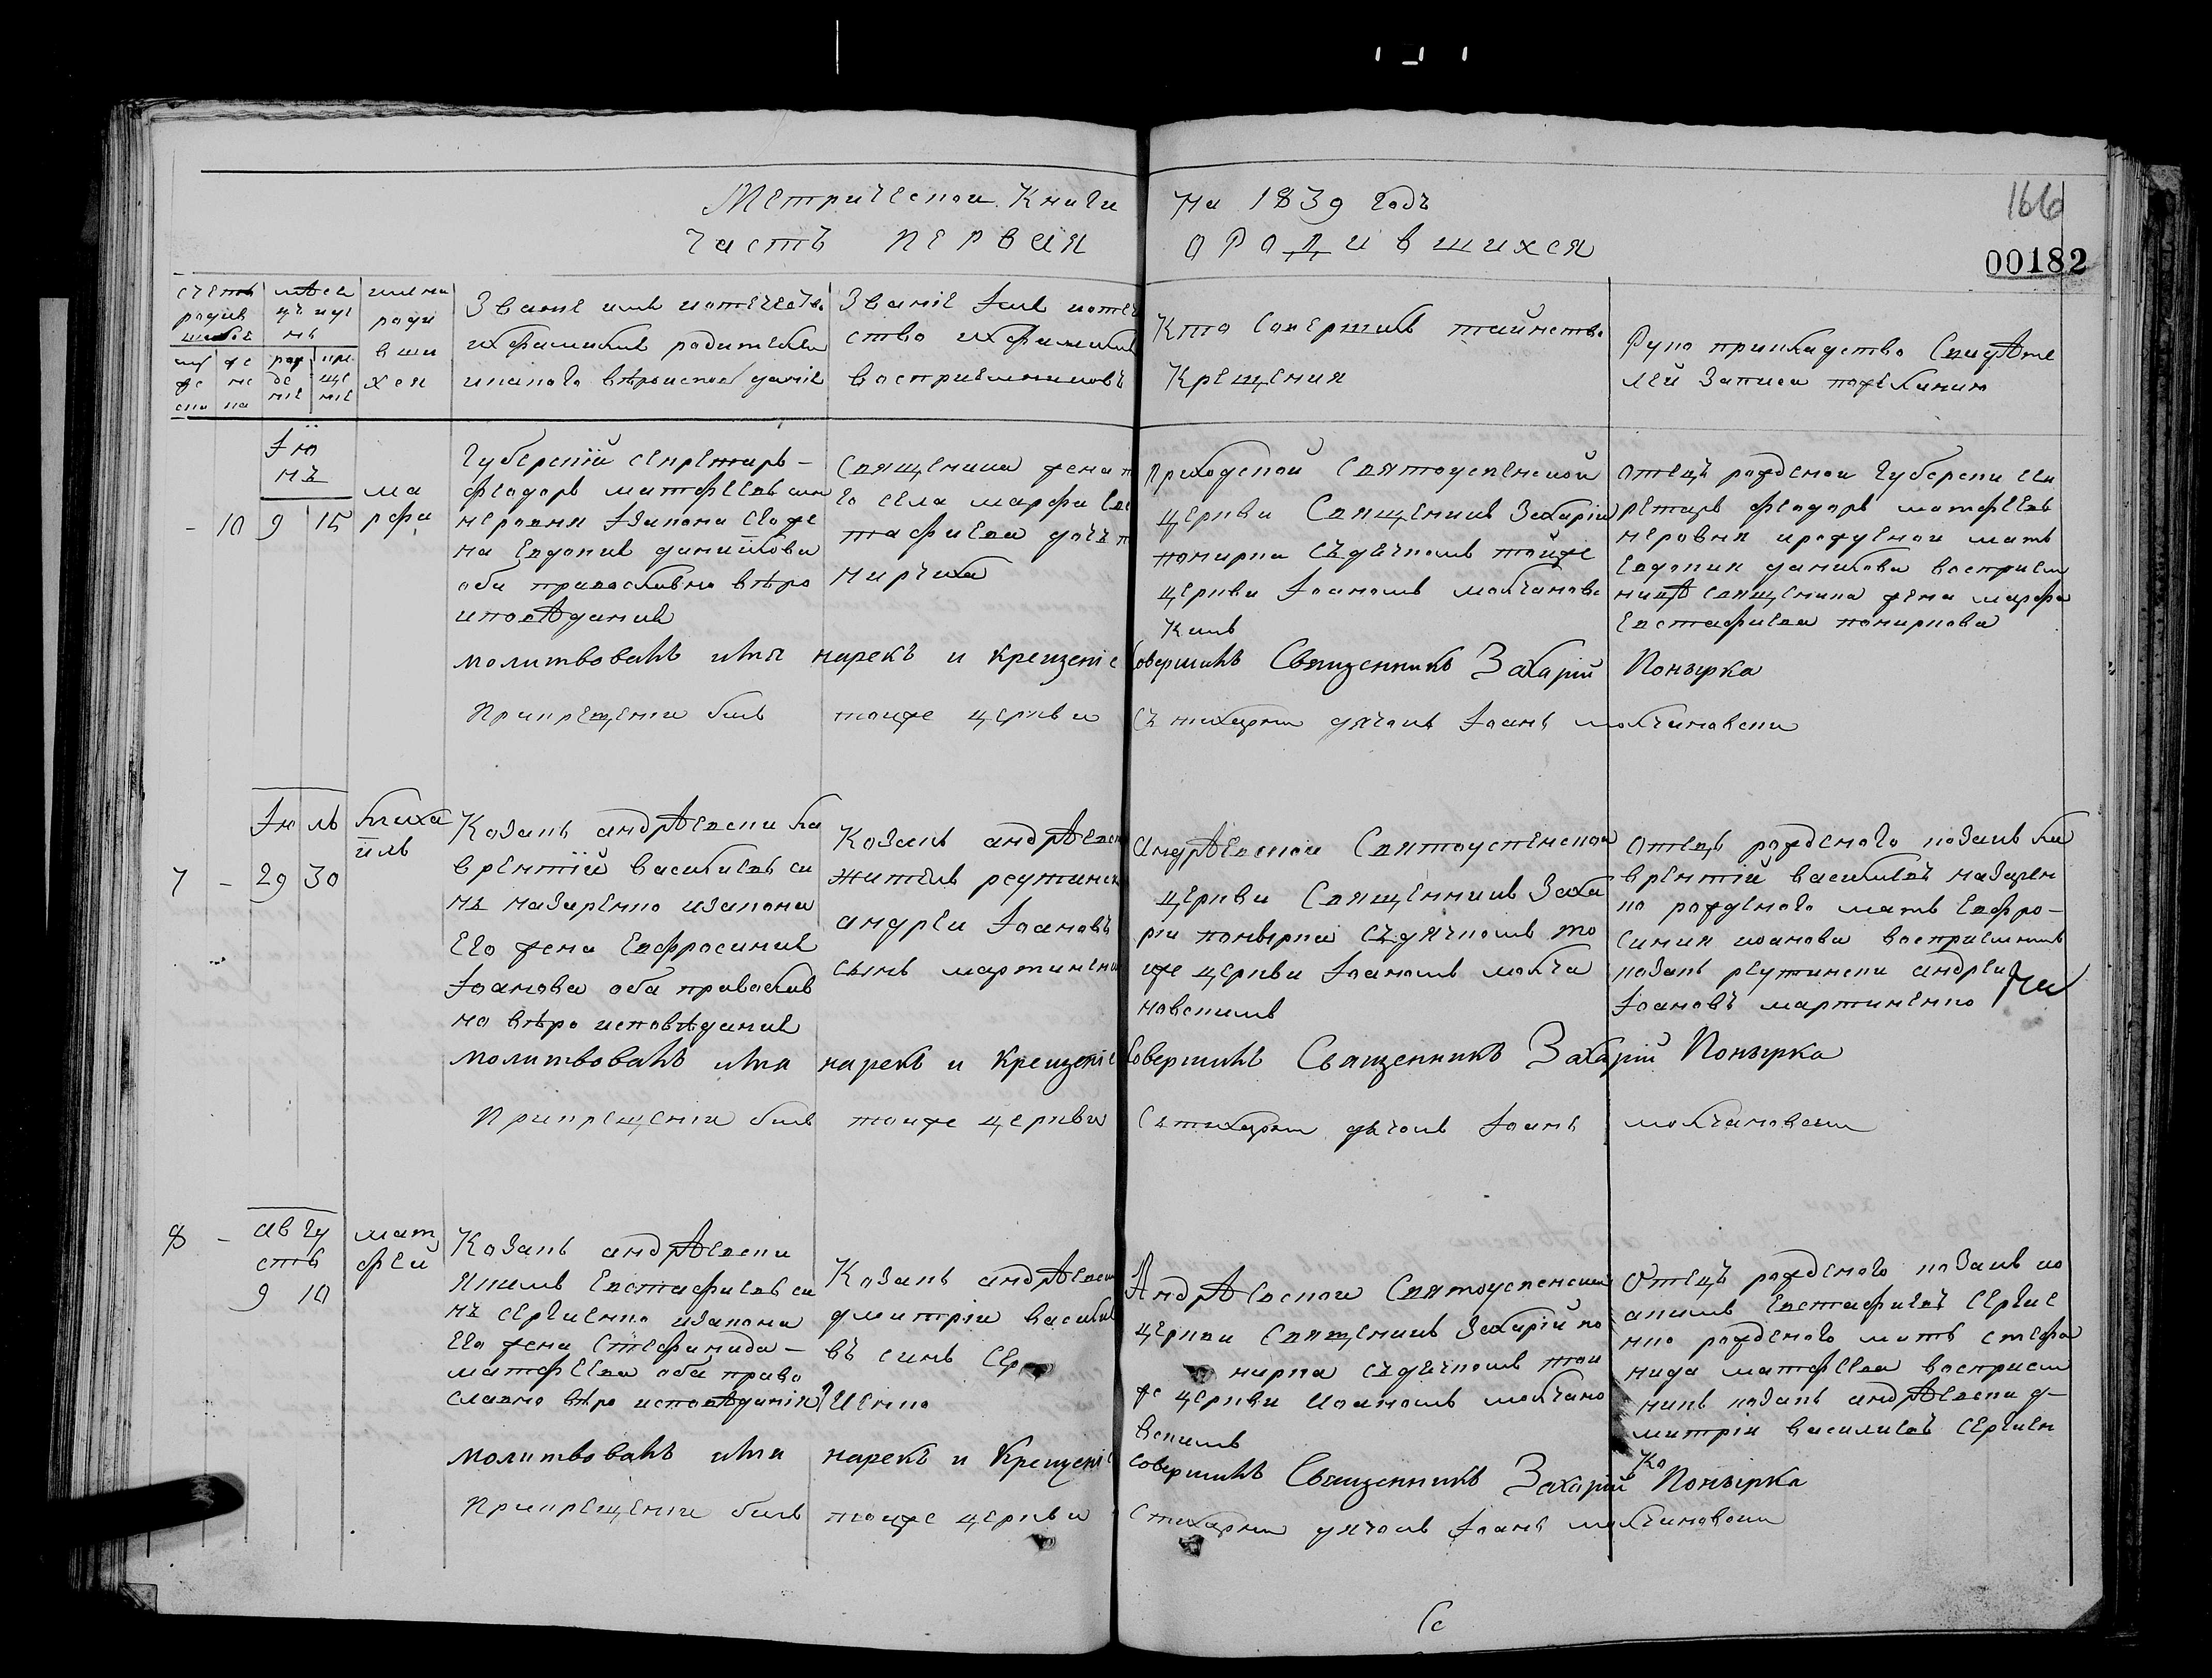 Метрической Книги на 1839 годъ
166
00182
часть первая о родившихся
счетъ родив шихся
муж еска
же нс ка
мѣся цъ и де нь
рож де ніе
кре ще ніе
имена роди вши хся
Званіе имя и отечество
и хфамилия родителей
и какого вѣроисповеданіе
Званіе Имя и отече
ство и хфамилия
восприемниковъ
Кто совершилъ таинство
Крещения
Рукоприкладство свидѣте
лей записи по желанию
Ію
нь
- 10 9 15
ма
рфа
Губерскій секретарь -
феодоръ матфеевъ сын
неровня Ізакона его же
на Евдокия данийлова
оба православно вѣро
исповѣдания
Священика жена
го села марфа Евс
тафиева дочь
нирчиха
Приходской Святоуспенской
церкви Священикъ Захарій
понирка съ дячкомъ тойже
церкви Іоаномъ молчановс
кимъ
отецъ рожденой губерски сек
ретарь феодоръ матфеевъ
неровня и рожденои мать
Евдокия данилова восприем
ницѣ священика жена марфа
Евстафиева пониркова
молитвовалъ имя нарекъ и крещеніе совершилъ Священникъ Захарій Понырка
При крещении билъ тоиже церкви стихарни дячокъ Іоанъ молчановски
Ію ль
7 - 29 30
Михаилъ
Козакъ андрѣевски ла
врентій василиевъ си
нъ назаренко изакона
Его жена Евфросиния
Іоанова оба православ
но вѣро исповѣдания
Козакъ андрѣевск
житель реутинск
андреи Іоановъ
сынъ мартиненко
Андрѣевской Святоуспенской
церкви Священникъ Заха
рій понырка съ дячкомъ то
иже церкви Іоаномъ молча
новскимъ
отецъ рожденого козакъ ла
врентій василиевъ назарен
ко рожденого мать Евфро-
синия иоанова восприемникъ
козакъ реутински андреи
Іоановъ мартиненко
молитвовалъ имя нарекъ и крещеніе совершилъ Священникъ Захарій Понырка
При крещении билъ тоиже церкви стихарни дячокъ Іоанъ молчановски
8 - авгу
стъ
9 10
мат
феи
Козакъ андрѣевски
якимъ Евстафиевъ си
нъ сергиенко изакона
его жена Стефанида -
матфеева оба право
славно вѣро исповѣдания
Козакъ андрѣевски
дмитрии васили
въ синъ Сер
гиенко
Андрѣевской Святоуспенскои
церкви Священикъ Захарій по
нирка съ дячкомъ тои
же церкви Иоаномъ молчано
вскимъ
Отецъ рожденого козакъ ио
акимъ Евстафиевъ Сергие
нко рожденого мать стефа
нида матфеева восприем
никъ козакъ андрѣевски д-
митріи василиевъ Сергиен
ко
молитвовалъ имя нарекъ и Крещеніе совершилъ Священникъ Захарій Понырка
При крещении билъ тоиже церкви стихарни дячокъ Іоанъ молчановски
Сс